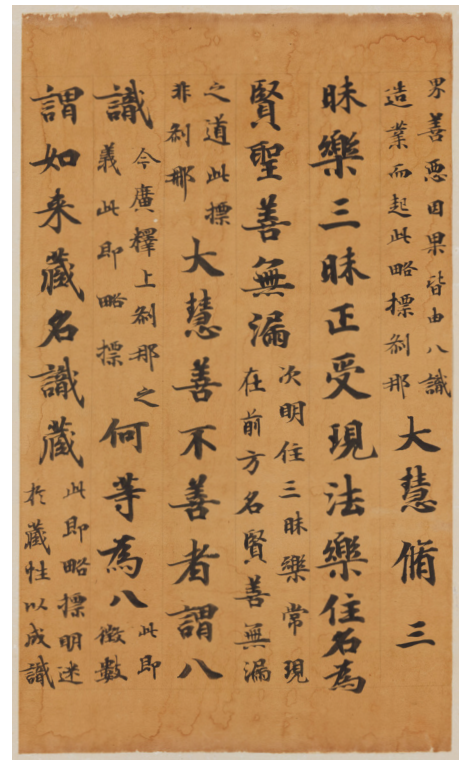 界善惡因果皆由八識
造業而起此略標剎那
大慧脩三
昧樂三昧正受現法樂住名為
賢聖善無漏
次明住三昧樂常現
在前方名賢善無漏
之道此標
非剎那
大慧善不善者謂八
識
今廣釋上剎那之
義此即略標
何等為八
此即
徵數
謂如来藏名識藏
此即略標明迷
扵藏性以成識